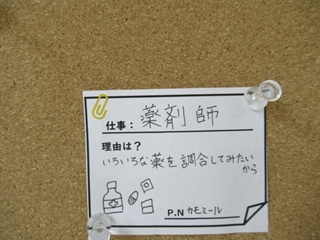 仕事: 薬剤師
理由は?
いろいろな薬を調合してみたい
から
P.N カモミール